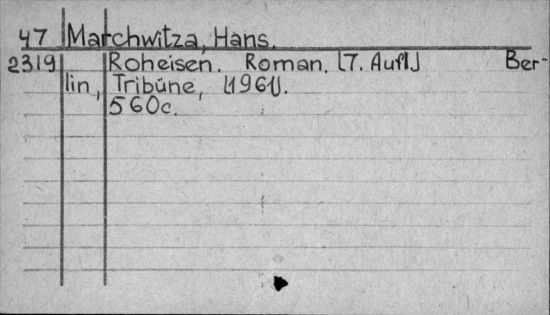 47 Marchwitza, Hans.
2319 Roheisen. Roman. [7. Aufl.] Ber-
lin, Tribüne, [1961].
560c.